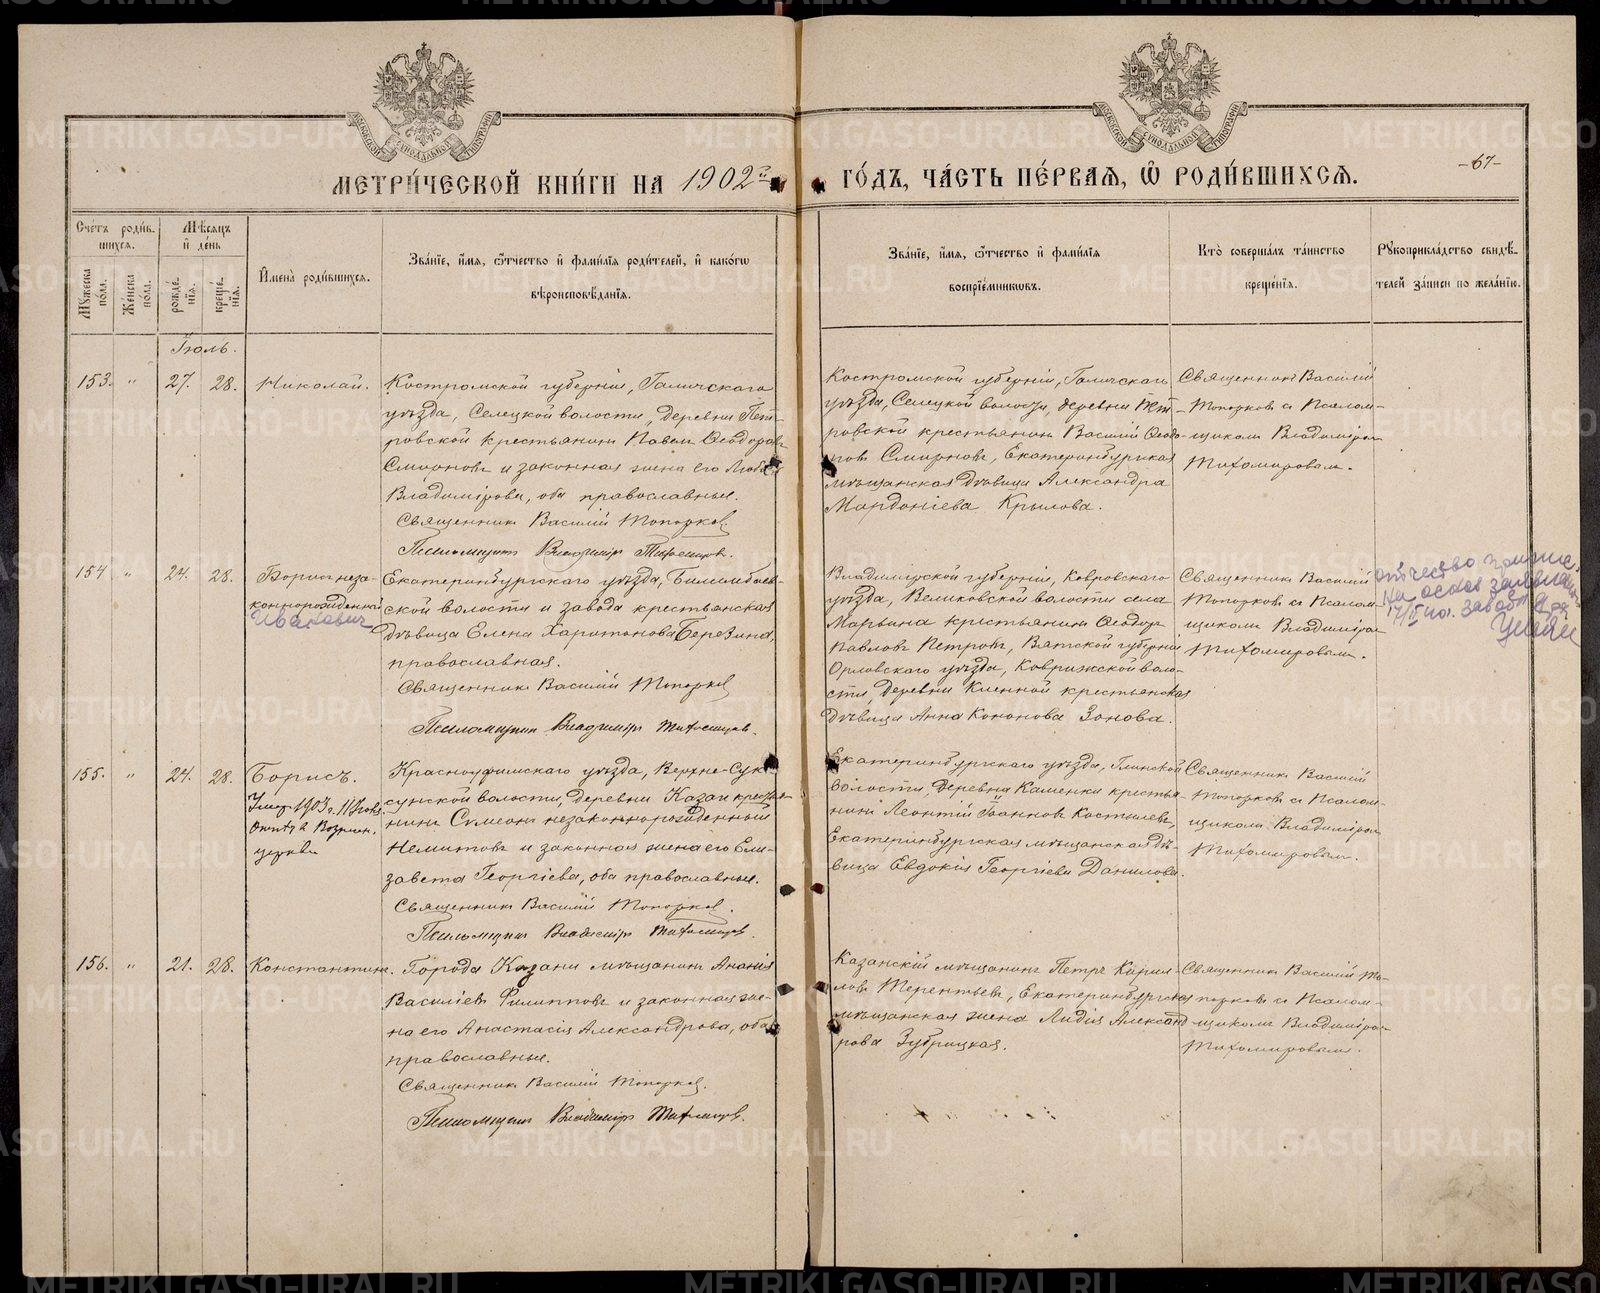 МЕТРИ́ЧЕСКОЙ КНИ́ГИ НА 1902й ГО́ДЪ, ЧА́СТЬ ПЕ́РВАѦ, Ѡ РОДИ́ВШИХСѦ.
-67-
Сче́тъ роди́в-
шихсѧ.
Мѣ́сѧцъ
и де́нь
Мꙋ́жеска
по́ла.
Же́нска
по́ла.
рожде́-
нїѧ.
креще́-
нїѧ.
Имена̀ роди́вшихсѧ.
Зва́нїе, и́мѧ, ѻ́тчество и фами́лїѧ роди́телей, и како́гѡ
вѣроисповѣ́данїѧ.
Зва́нїе, и́мѧ, ѻ́тчество и фами́лїѧ
воспрїе́мниковъ.
Кто̀ соверша́лъ та́инство
креще́нїѧ.
Рꙋкоприкла́дство свидѣ́-
телей за́писи по жела́нїю.
Іюль.
153. " 27. 28. Николай.
Костромской губерніи, Галичскаго
уѣзда, Селецкой волости, деревни Пет-
ровской крестьянинъ Павелъ Ѳеодоровъ
Смирновъ и законная жена его Любовь
Владимірова, оба православные.
Священникъ Василій Топорковъ.
Псаломщикъ Владиміръ Тихомировъ.
Костромской губерніи, Галичскаго
уѣзда, Селецкой волости, деревни Пет-
ровской крестьянинъ Василій Ѳеодо-
ровъ Смирновъ, Екатеринбургская
мѣщанская дѣвица Александра
Мардоніева Крылова.
Священникъ Василій
Топорковъ съ Псалом-
щикомъ Владиміромъ
Тихомировымъ.
154 " 24. 28. Борисъ неза-
коннорожденный
Иванович
Екатеринбургскаго уѣзда, Билимбаев-
ской волости и завода крестьянская
дѣвица Елена Харитонова Березина,
православная.
Священникъ Василій Топорковъ
Псаломщикъ Владиміръ Тихомировъ.
Владимірской губерніи, Ковровскаго
уѣзда, Великовской волости села
Марьина крестьянинъ Ѳеодоръ
Павловъ Петровъ, Вятской губерніи
Орловскаго уѣзда, Коврижской воло-
сти, деревни Кленной крестьянская
дѣвица Анна Кононова Зонова.
Священникъ Василій
Топорковъ съ Псалом-
щикомъ Владиміромъ
Тихомировымъ.
отчество
на основ заявления
155. " 24. 28. Борисъ.
Умеръ 1903 г.
церкви
Красноуфимскаго уѣзда, Верхне-Сук-
сунской волости, деревни Казаи крестья-
нинъ Симеонъ незаконнорожденный
Немитовъ и законная жена его Ели-
завета Георгіева, оба православные.
Священникъ Василій Топорковъ.
Псаломщикъ Владиміръ Тихомировъ.
Екатеринбургскаго уѣзда, Глинской
волости, деревни Каменки крестья-
нинъ Леонтій Іоанновъ Костылевъ,
Екатеринбургская мѣщанская дѣ-
вица Евдокія Георгіева Данилова.
Священникъ Василій
Топорковъ съ Псалом-
щикомъ Владиміромъ
Тихомировымъ.
156. " 21. 28. Константинъ.
Города Казани мѣщанинъ Ананія
Василіевъ Филипповъ и законная же-
на его Анастасія Александрова, оба
православные.
Священникъ Василій Топорковъ.
Псаломщикъ Владиміръ Тихомировъ.
Казанскій мѣщанинъ Петръ Кирил-
ловъ Терентьевъ, Екатеринбургская
мѣщанская жена Лидія Александ-
рова Зубрицкая.
Священникъ Василій То-
порковъ съ Псалом-
щикомъ Владиміромъ
Тихомировымъ.
METRIKI.GASO-URAL.RU